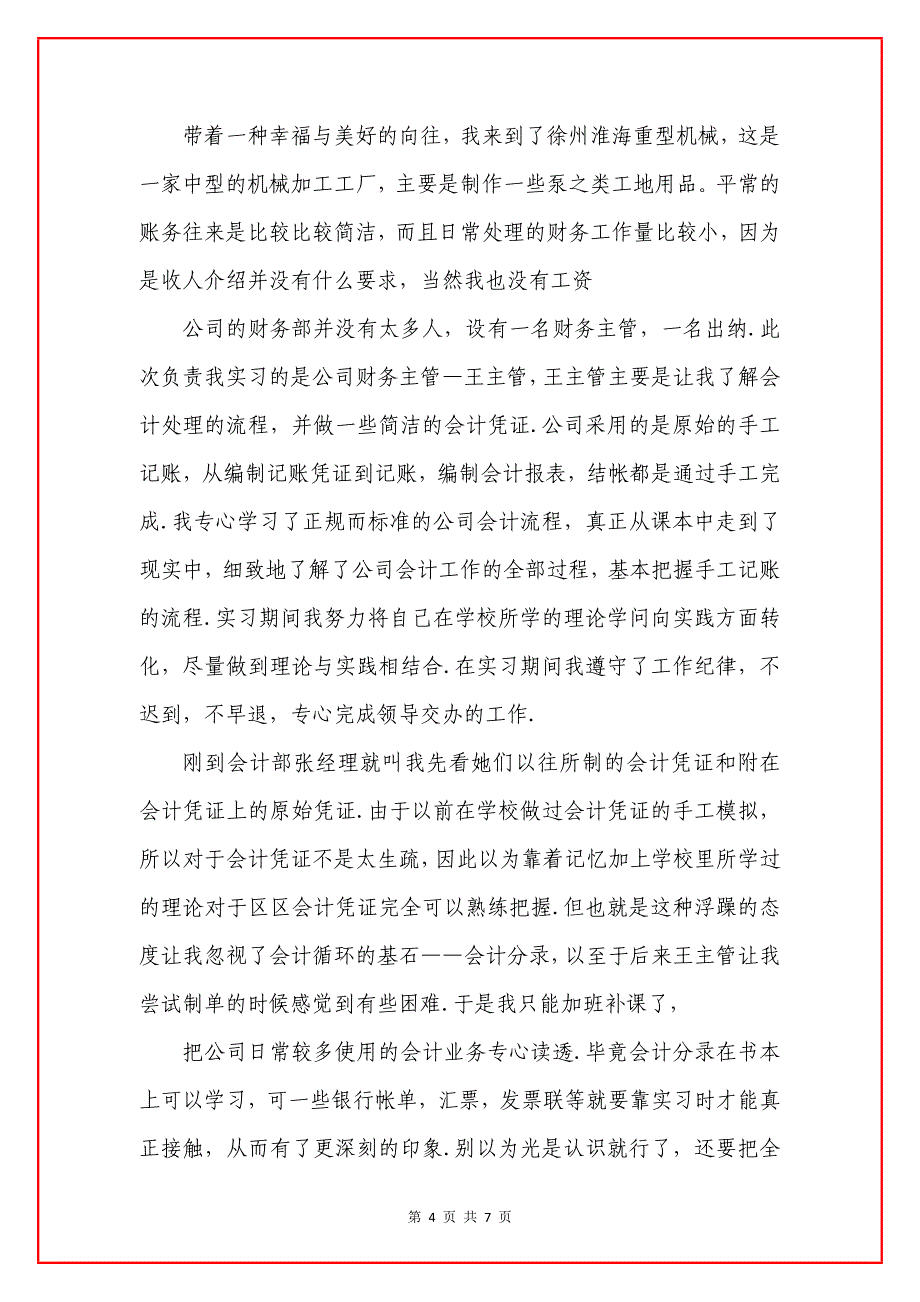 带着一种幸福与美好的向往，我来到了徐州淮海重型机械，这是
一家中型的机械加工工厂，主要是制作一些泵之类工地用品。平常的
账务往来是比较比较简洁，而且日常处理的财务工作量比较小，因为
是收人介绍并没有什么要求，当然我也没有工资
公司的财务部并没有太多人，设有一名财务主管，一名出纳.此
次负责我实习的是公司财务主管—王主管，王主管主要是让我了解会
计处理的流程，并做一些简洁的会计凭证.公司采用的是原始的手工
记账，从编制记账凭证到记账，编制会计报表，结帐都是通过手工完
成.我专心学习了正规而标准的公司会计流程，真正从课本中走到了
现实中，细致地了解了公司会计工作的全部过程，基本把握手工记账
的流程.实习期间我努力将自己在学校所学的理论学问向实践方面转
化，尽量做到理论与实践相结合.在实习期间我遵守了工作纪律，不
迟到，不早退，专心完成领导交办的工作.
刚到会计部张经理就叫我先看她们以往所制的会计凭证和附在
会计凭证上的原始凭证.由于以前在学校做过会计凭证的手工模拟，
所以对于会计凭证不是太生疏，因此以为靠着记忆加上学校里所学过
的理论对于区区会计凭证完全可以熟练把握.但也就是这种浮躁的态
度让我忽视了会计循环的基石——会计分录，以至于后来王主管让我
尝试制单的时候感觉到有些困难.于是我只能加班补课了，
把公司日常较多使用的会计业务专心读透.毕竟会计分录在书本
上可以学习，可一些银行帐单，汇票，发票联等就要靠实习时才能真
正接触，从而有了更深刻的印象.别以为光是认识就行了，还要把全
第 4 页 共 7 页